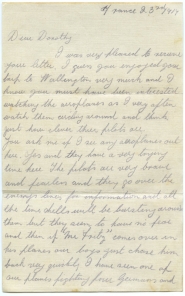 France 23rd/7/17
Dear Dorothy
I was very pleased to receive
your letter I guess you enjoyed your
trip to Wallington very much and I
know you must have been interested
watching the aeroplanes as I very often
watch them circling around and think
just how clever these pilots are.
You ask me if I see any aeroplanes out
here. Yes and they have a very trying
time here. The pilots are very brave
and fearless and they go over the
enemys lines for information with all
the time shells will be bursting around
them but they seem to have no fear
and then if "Mr Fritz" comes over in
his planes our boys just chase him
back very quickly I have seen one of
our planes fighting four Germans and